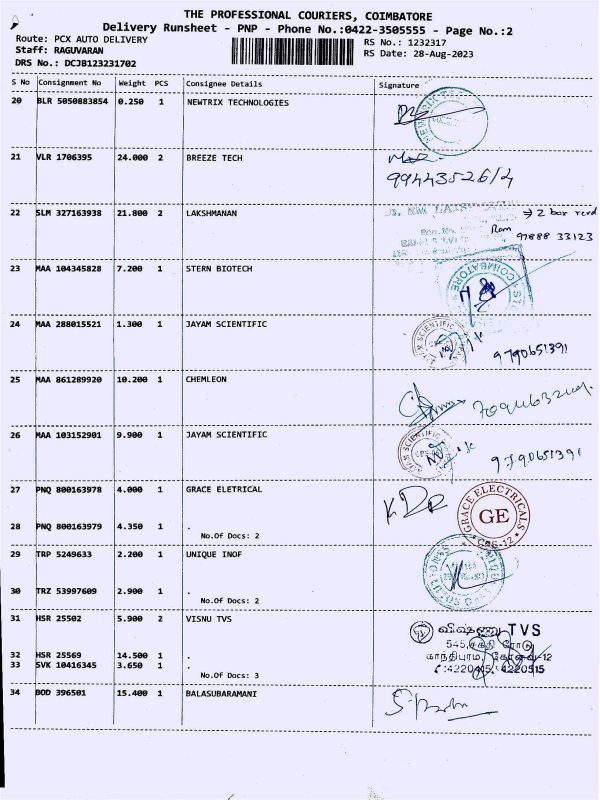 THE PROFESSIONAL COURIERS, COIMBATORE
Delivery Runsheet - PNP - Phone No.:0422-3505555 - Page No.:2
Route: PCX AUTO DELIVERY RS No.: 1232317
Staff: RAGUVARAN RS Date: 28-Aug-2023
DRS No.: DCJB123231702
S No Consignment No Weight PCS Consignee Details Signature
20 BLR 5050883854 0.250 1 NEWTRIX TECHNOLOGIES
21 VLR 1706395 24.000 2 BREEZE TECH
22 SLM 327163938 21.800 2 LAKSHMANAN → 2 box rcvd
Ram
97888 33123
23 MAA 104345828 7.200 1 STERN BIOTECH
COIMBATORE
24 MAA 288015521 1.300 1 JAYAM SCIENTIFIC
9790651391
25 MAA 861289920 10.200 1 CHEMLEON
26 MAA 103152901 9.900 1 JAYAM SCIENTIFIC
9790651391
27 PNQ 800163978 4.000 1 GRACE ELETRICAL
GRACE ELECTRICALS
GE
CBE-12
28 PNQ 800163979 4.350 1 .
No.Of Docs: 2
29 TRP 5249633 2.200 1 UNIQUE INOF
30 TRZ 53997609 2.900 1 .
No.Of Docs: 2
31 HSR 25502 5.900 2 VISNU TVS
விஷ்ணு TVS
545, சக்தி ரோடு
காந்திபுரம், கோவை-12
32 HSR 25569 14.500 1 .
33 SVK 10416345 3.650 1 .
No.Of Docs: 3
34 BOD 396501 15.400 1 BALASUBARAMANI